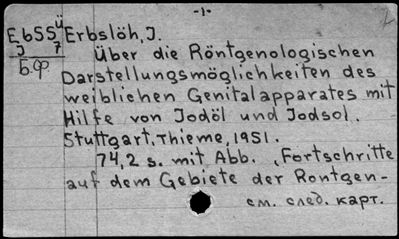 -1-
Ü
EbSS Erbslöh, J.
J 7
Б.ф Über die Röntgenologischen
Darstellungsmöglichkeiten des
weiblichen Genitalapparates mit
Hilfe von Jodöl und Jodsol.
Stuttgart, Thieme, 1951.
74,2 s. mit Abb. „Fortschritte
auf dem Gebiete der Rontgen-
см. след. карт.